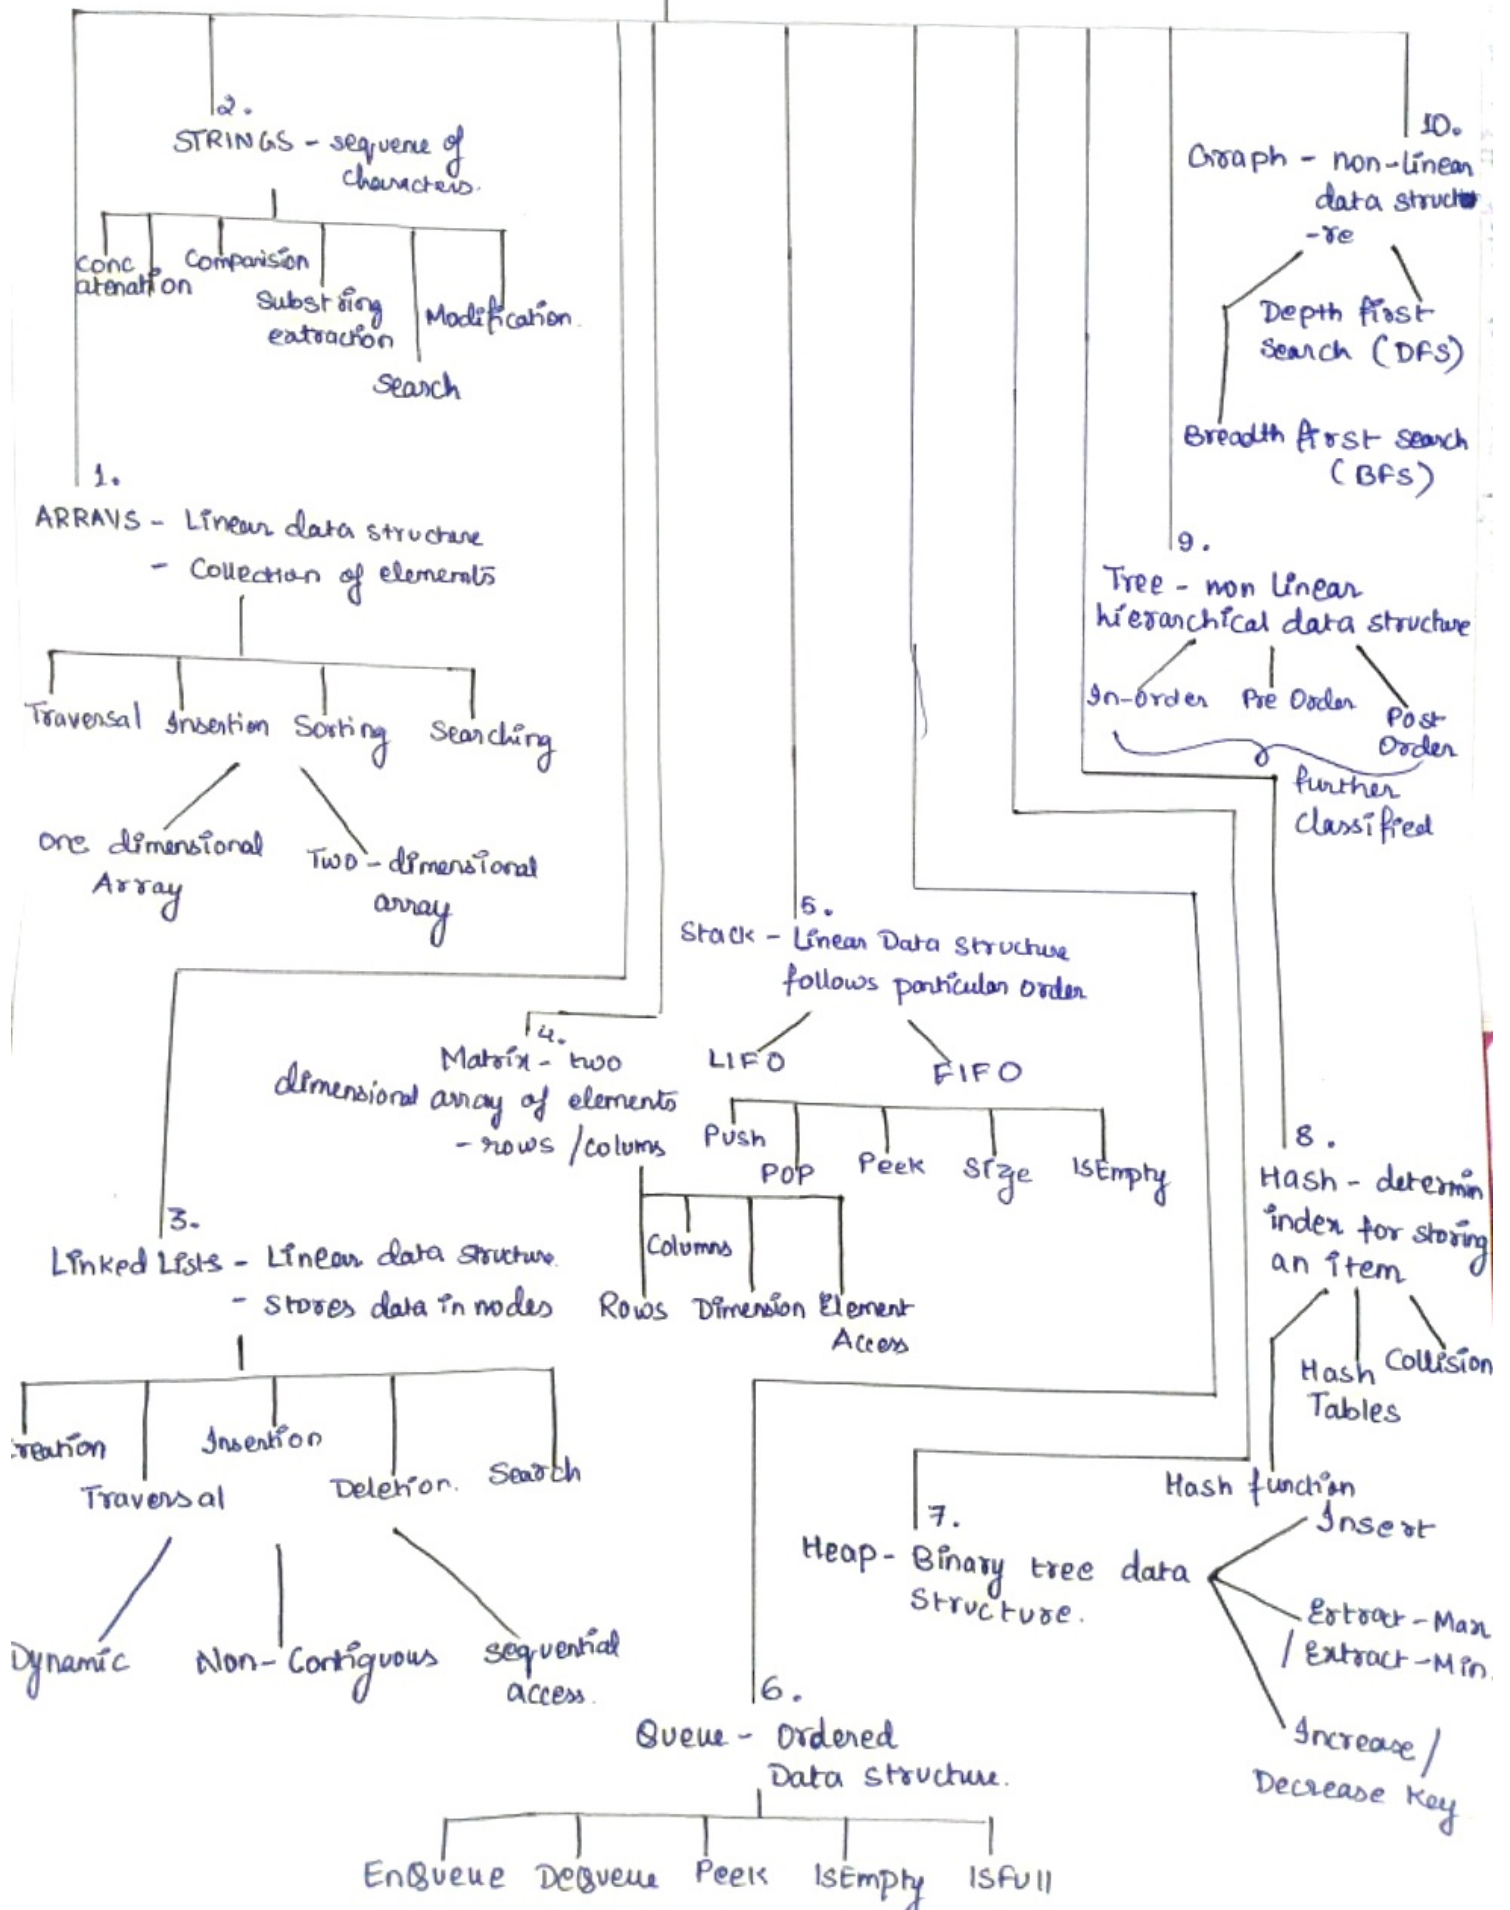 2.
STRINGS - sequence of
characters.
Conc
atenation
Comparision
Substring
extraction
Search
Modification.
1.
ARRAYS - Linear data structure
- Collection of elements
Traversal Insertion Sorting Searching
One dimensional
Array
Two-dimensional
array
3.
Linked Lists - Linear data structure.
- Stores data in nodes
reation
Traversal
Insertion
Deletion.
Search
Dynamic
Non-Contiguous
sequential
access.
4.
Matrix - two
dimensional array of elements
- rows / colums
Rows
Columns
Dimension
Element
Access
5.
Stack - Linear Data Structure
follows particular order
LIFO
FIFO
Push
POP
Peek
Size
IsEmpty
6.
Queue - Ordered
Data structure.
EnQueue DeQueue Peek IsEmpty IsFull
7.
Heap - Binary tree data
Structure.
Insert
Extract-Max
/ Extract-Min.
Increase /
Decrease Key
8.
Hash - determin
index for storing
an item
Hash function
Hash
Tables
Collision
9.
Tree - non linear
hierarchical data structure
In-order Pre Order Post
Order
further
classified
10.
Graph - non-linear
data structu
-re
Depth first
Search (DFS)
Breadth first search
(BFS)